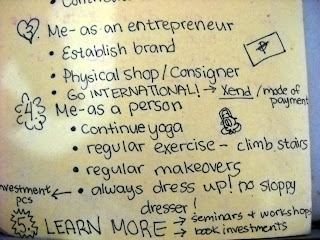 3 Me- as an entrepreneur
• Establish brand
• Physical shop / Consigner
• GO INTERNATIONAL! → Xend / mode of payment
4. Me- as a person
• Continue yoga
• regular exercise - climb stairs
• regular makeovers
• always dress up! no sloppy dresser!
investment pcs ←
5. LEARN MORE → seminars + workshops
→ book investments